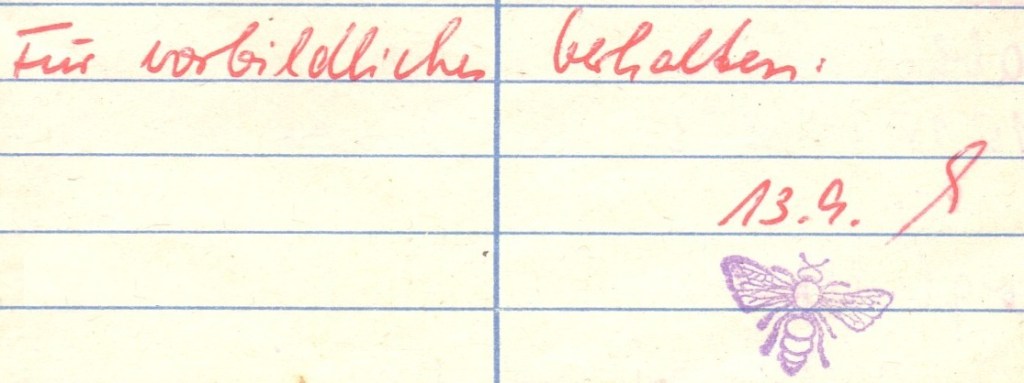 Für vorbildliches Verhalten.
13.9.